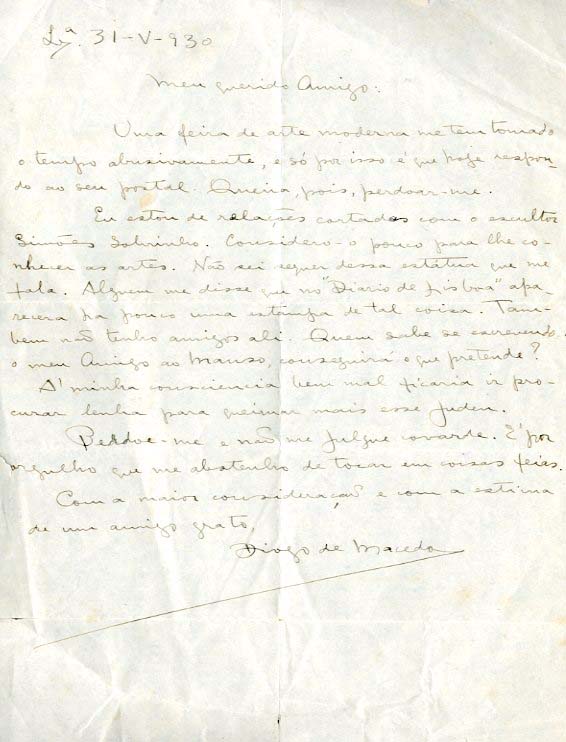 Lxª. 31-V-930
Meu querido Amigo:
Uma feira de arte moderna me tem tomado
o tempo abusivamente, e só por isso é que hoje respon-
do ao seu postal. Queira, pois, perdoar-me.
Eu estou de relações cortadas com o escultor
Simões Sobrinho. Considero-o pouco para lhe co-
nhecer as artes. Não sei sequer dessa estátua que me
fala. Alguem me disse que no "Diario de Lisboa" apa
recera ha pouco uma estampa de tal coisa. Tam-
bem não tenho amigos ali. Quem sabe se escrevendo
o meu Amigo ao Manso, conseguirá o que pretende?
A' minha consciencia bem mal ficaria ir pro-
curar lenha para queimar mais esse judeu.
Perdoe-me e não me julgue covarde. É por
orgulho que me abstenho de tocar em coisas feias.
Com a maior consideração e com a estima
de um amigo grato,
Diogo de Macedo